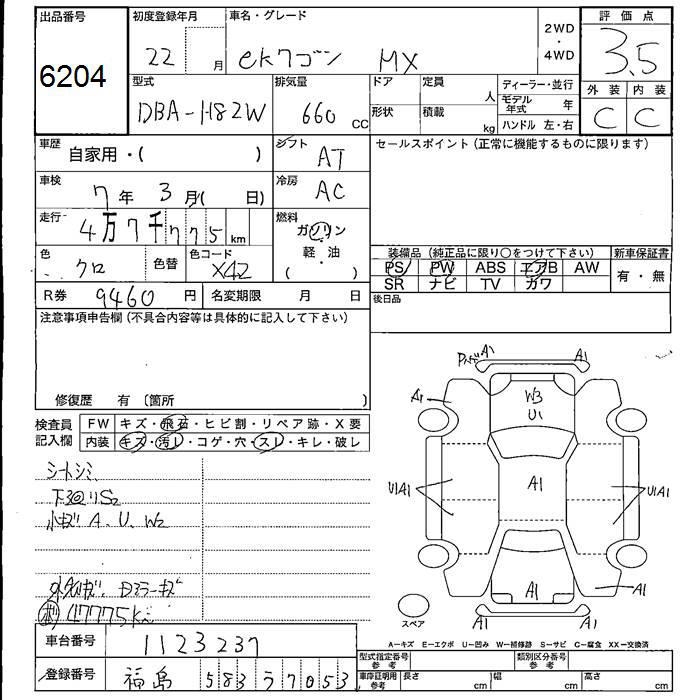 出品番号
6204
初度登録年月
22 月
車名・グレード
ekワゴン MX
2WD
・
4WD
評価点
3.5
外装 内装
C C
型式
DBA-H82W
排気量
660 CC
ドア
形状
定員
人
積載
kg
ディーラー・並行
モデル年式 年
ハンドル 左・右
車歴
自家用・( )
シフト
AT
車検
7年 3月( 日)
冷房
AC
走行
4万7千775 km
燃料
ガソリン
軽・油
( )
色
クロ
色替
色コード
X42
R券 9460 円
名変期限 月 日
セールスポイント(正常に機能するものに限ります)
装備品(純正品に限り〇をつけて下さい)
PS PW ABS エアB AW
SR ナビ TV カワ
新車保証書
有・無
後日品
注意事項申告欄(不具合内容等は具体的に記入して下さい)
修復歴 有 〔箇所 〕
検査員記入欄
FW キズ・飛石・ヒビ割・リペア跡・X要
内装 キズ・汚レ・コゲ・穴・スレ・キレ・破レ
シートシミ
下廻りS2
小キズ A、U、W2
Dミラーキズ
47775km
車台番号 1123237
登録番号 福島 583 う 7053
A1 A1
A1
W3
U1
U1A1
A1
U1A1
A1
A1
A1 A1
スペア
A−キズ E−エクボ U−凹み W−補修跡 S−サビ C−腐食 XX−交換済
型式指定番号
参考
類別区分番号
参考
車庫証明用
参考
長さ cm 幅 cm 高さ cm